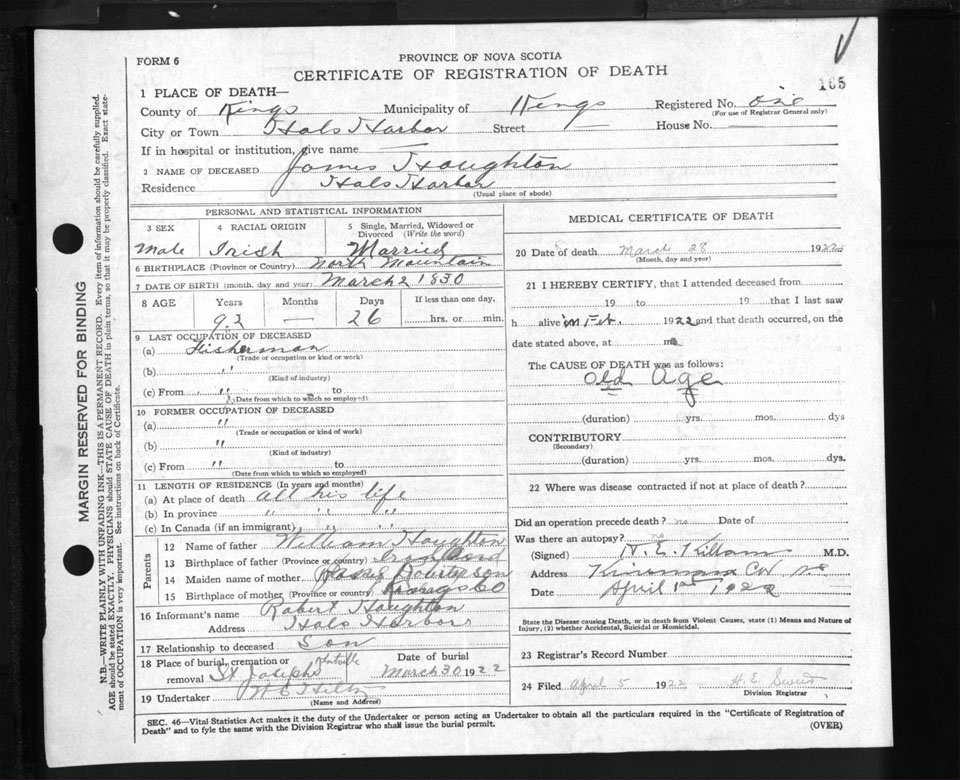 FORM 6
PROVINCE OF NOVA SCOTIA
CERTIFICATE OF REGISTRATION OF DEATH
165
1 PLACE OF DEATH—
County of Kings Municipality of Kings Registered No. one
(For use of Registrar General only)
City or Town Hals Harbor Street House No.
If in hospital or institution, give name
2 NAME OF DECEASED James Houghton
Residence Hals Harbor
(Usual place of abode)
PERSONAL AND STATISTICAL INFORMATION
3 SEX 4 RACIAL ORIGIN 5 Single, Married, Widowed or Divorced (Write the word)
Male Irish Married
6 BIRTHPLACE (Province or Country) North Mountain
7 DATE OF BIRTH (month, day and year) March 2 1830
8 AGE Years Months Days If less than one day,
92 — 26 hrs. or min.
9 LAST OCCUPATION OF DECEASED
(a) Fisherman
(Trade or occupation or kind of work)
(b) "
(Kind of industry)
(c) From " to
(Date from which to which so employed)
10 FORMER OCCUPATION OF DECEASED
(a) "
(Trade or occupation or kind of work)
(b) "
(Kind of industry)
(c) From " to
(Date from which to which so employed)
11 LENGTH OF RESIDENCE (In years and months)
(a) At place of death all his life
(b) In province " " "
(c) In Canada (if an immigrant) " " "
Parents
12 Name of father William Houghton
13 Birthplace of father (Province or country)
14 Maiden name of mother Robertson
15 Birthplace of mother (Province or country) Kings Co
16 Informant's name Robert Houghton
Address Hals Harbor
17 Relationship to deceased Son
18 Place of burial, cremation or removal St Josephs Kentville Date of burial March 30 1922
19 Undertaker W E
(Name and Address)
MEDICAL CERTIFICATE OF DEATH
20 Date of death March 28 1922
(Month, day and year)
21 I HEREBY CERTIFY, that I attended deceased from
19 to 19 that I last saw
h alive in Feb. 1922 and that death occurred, on the
date stated above, at m
The CAUSE OF DEATH was as follows:
Old Age
(duration) yrs. mos. dys
CONTRIBUTORY
(Secondary)
(duration) yrs. mos. dys.
22 Where was disease contracted if not at place of death?
Did an operation precede death? no Date of
Was there an autopsy? no
(Signed) Killam M.D.
Address N S
Date April 1st 1922
State the Disease causing Death, or in death from Violent Causes, state (1) Means and Nature of
Injury, (2) whether Accidental, Suicidal or Homicidal.
23 Registrar's Record Number
24 Filed April 5 1922 H. E.
Division Registrar
SEC. 46—Vital Statistics Act makes it the duty of the Undertaker or person acting as Undertaker to obtain all the particulars required in the "Certificate of Registration of
Death" and to fyle the same with the Division Registrar who shall issue the burial permit.
(OVER)
MARGIN RESERVED FOR BINDING
N.B.—WRITE PLAINLY WITH UNFADING INK—THIS IS A PERMANENT RECORD. Every item of information should be carefully supplied.
AGE should be stated EXACTLY. PHYSICIANS should STATE CAUSE OF DEATH in plain terms, so that it may be properly classified. Exact state-
ment of OCCUPATION is very important. See instructions on back of Certificate.